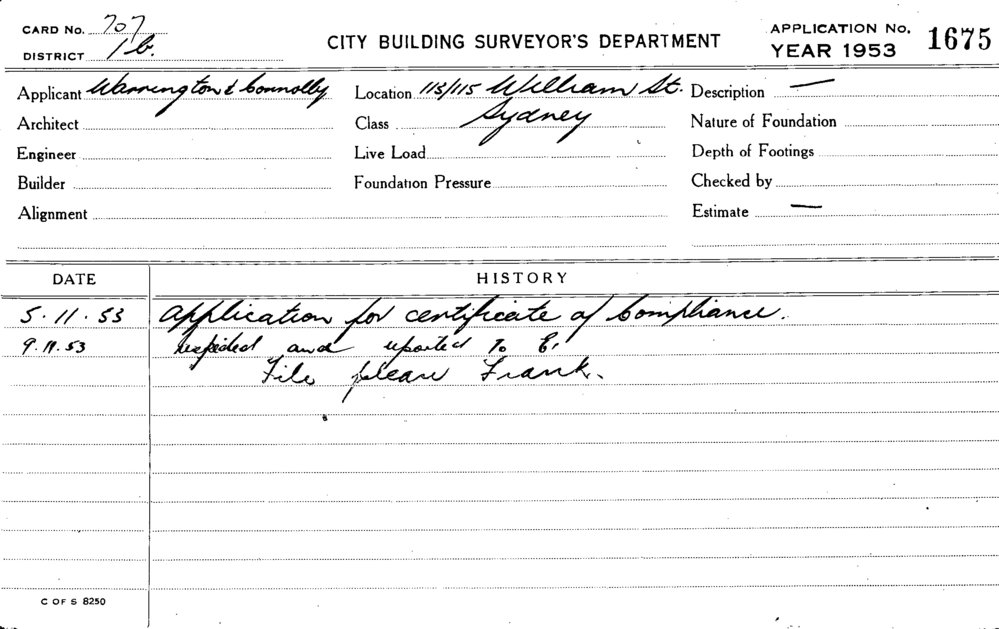 CARD No. 707
DISTRICT 1b.
CITY BUILDING SURVEYOR'S DEPARTMENT
APPLICATION No.
YEAR 1953
1675
Applicant Warrington & Connolly
Location 113/115 William St.
Description —
Architect
Class Sydney
Nature of Foundation
Engineer
Live Load
Depth of Footings
Builder
Foundation Pressure
Checked by
Alignment
Estimate —
DATE HISTORY
5.11.53 Application for certificate of Compliance.
9.11.53 Inspected and reported to
File please Frank.
C OF S 8250